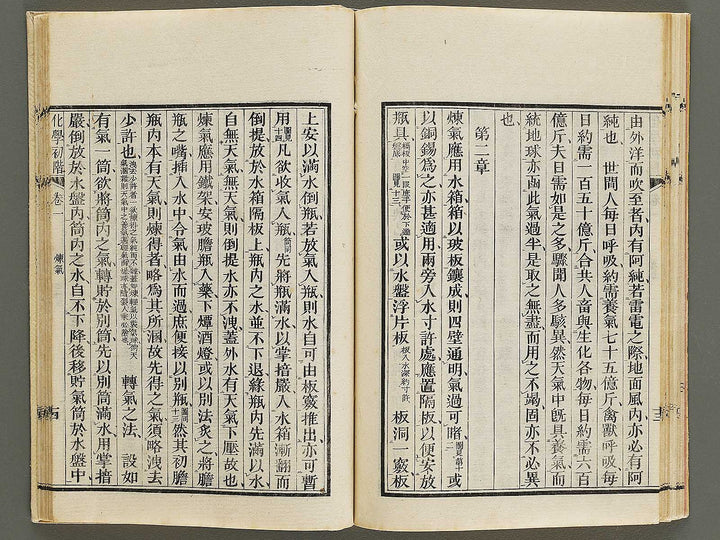 由外洋而吹至者內有阿純若雷電之際地面風內亦必有阿
純也　世間人每日呼吸約需養氣七十五億斤禽獸呼吸每
日約需一百五十億斤合共人畜與生化各物每日約需六百
億斤夫日需如是之多驟聞人多駭異然天氣中旣具養氣而
統地球亦函此氣過半是取之無盡而用之不竭固亦不必異
也
第二章
煉氣應用水箱箱以玻板鑲成則四壁通明氣過可睹圖見第十二或
以銅錫爲之亦甚適用兩旁入水寸許處應置隔板以便安放
瓶具圖見十三或以水盤浮片板板入水深約寸許板洞一竅板
上安以滿水倒瓶若放氣入瓶則水自可由板竅推出亦可暫
用圖見十四凡欲收氣入瓶筒同先將瓶滿水以掌揞嚴入水箱漸翻而
倒提放於水箱隔板上瓶內之水並不下退緣瓶內先滿以水
自無天氣無天氣則倒提水亦不洩蓋外水有天氣下壓故也
煉氣應用鐵架安玻膽瓶入藥下燂酒燈或以別法炙之將膽
瓶之嘴插入水中令氣由水而過庶便接以別瓶圖同十三然其初膽
瓶內本有天氣則煉得者略爲其所溷故先得之氣須略洩去
少許也轉氣之法　設如
有氣一筒欲將筒內之氣轉貯於別筒先以別筒滿水用掌揞
嚴倒放於水盤內筒內之水自不下降後移貯氣筒於水盤中
化學初階　卷一　煉氣